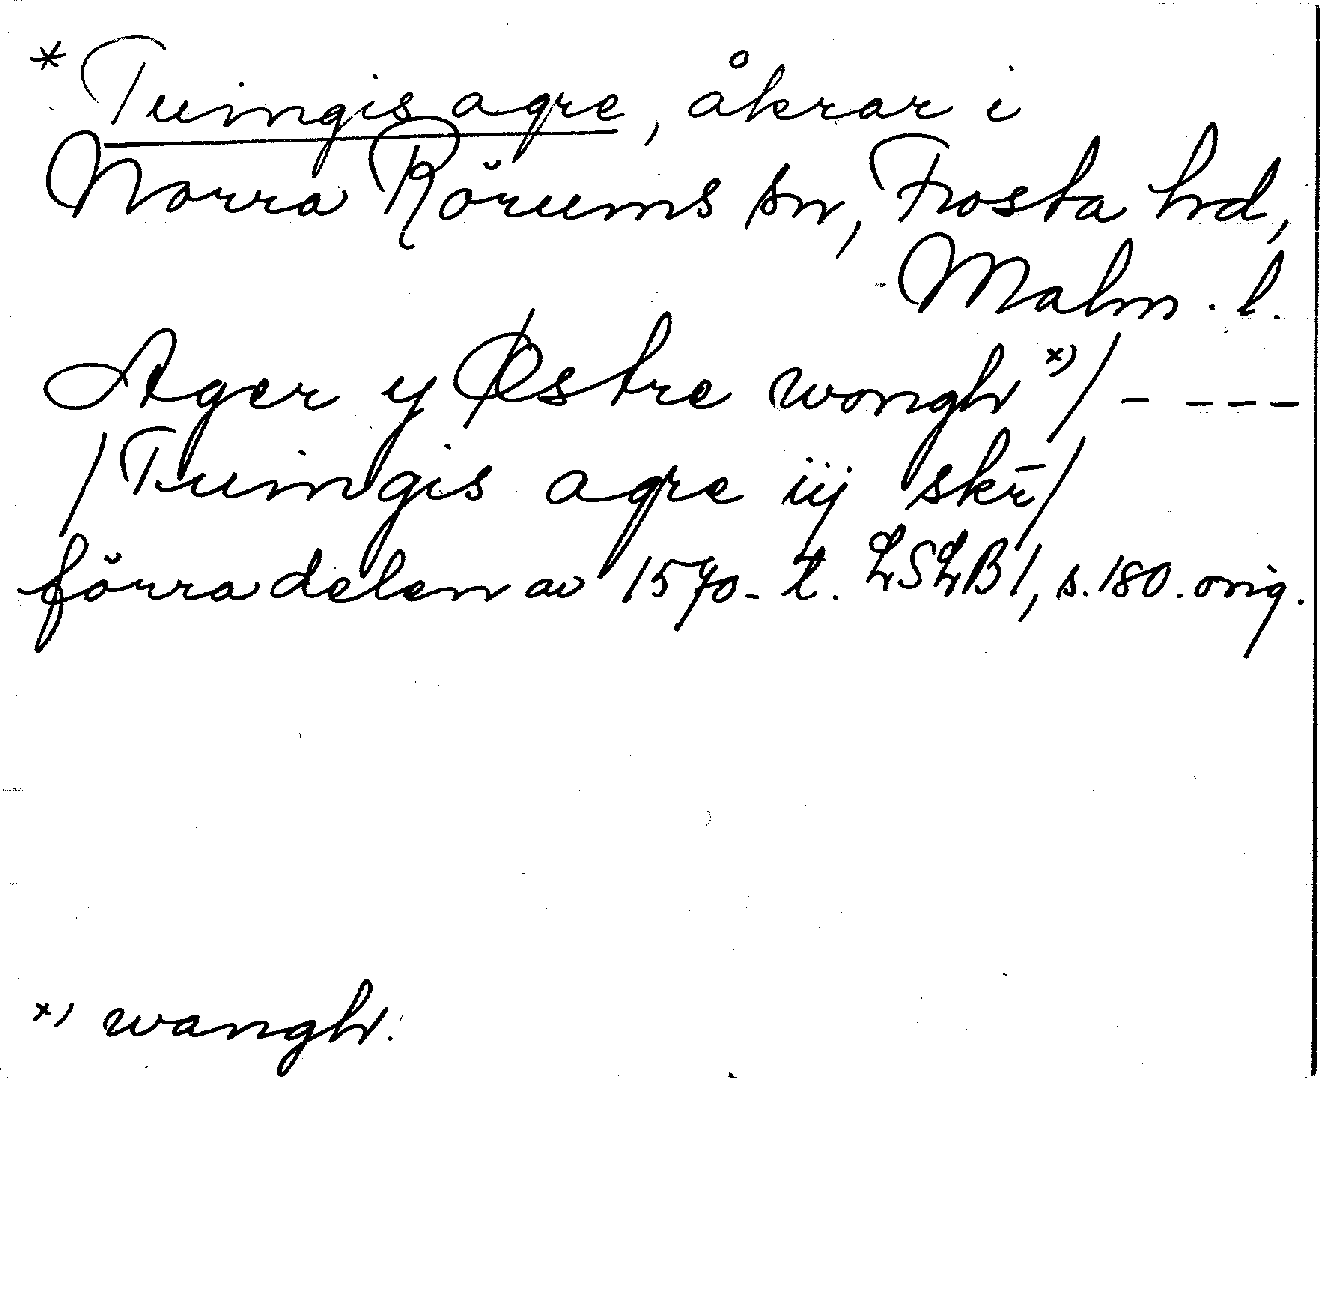 * Tuingis agre, åkrar i
Norra Rörums sn, Frosta hd,
Malm. l.
Ager y Østre wongh *) / - - - -
/ Tuingis agre iij skr̄ /
förra delen av 1570-t. LSLB 1, s. 180. orig.
*) wangh.